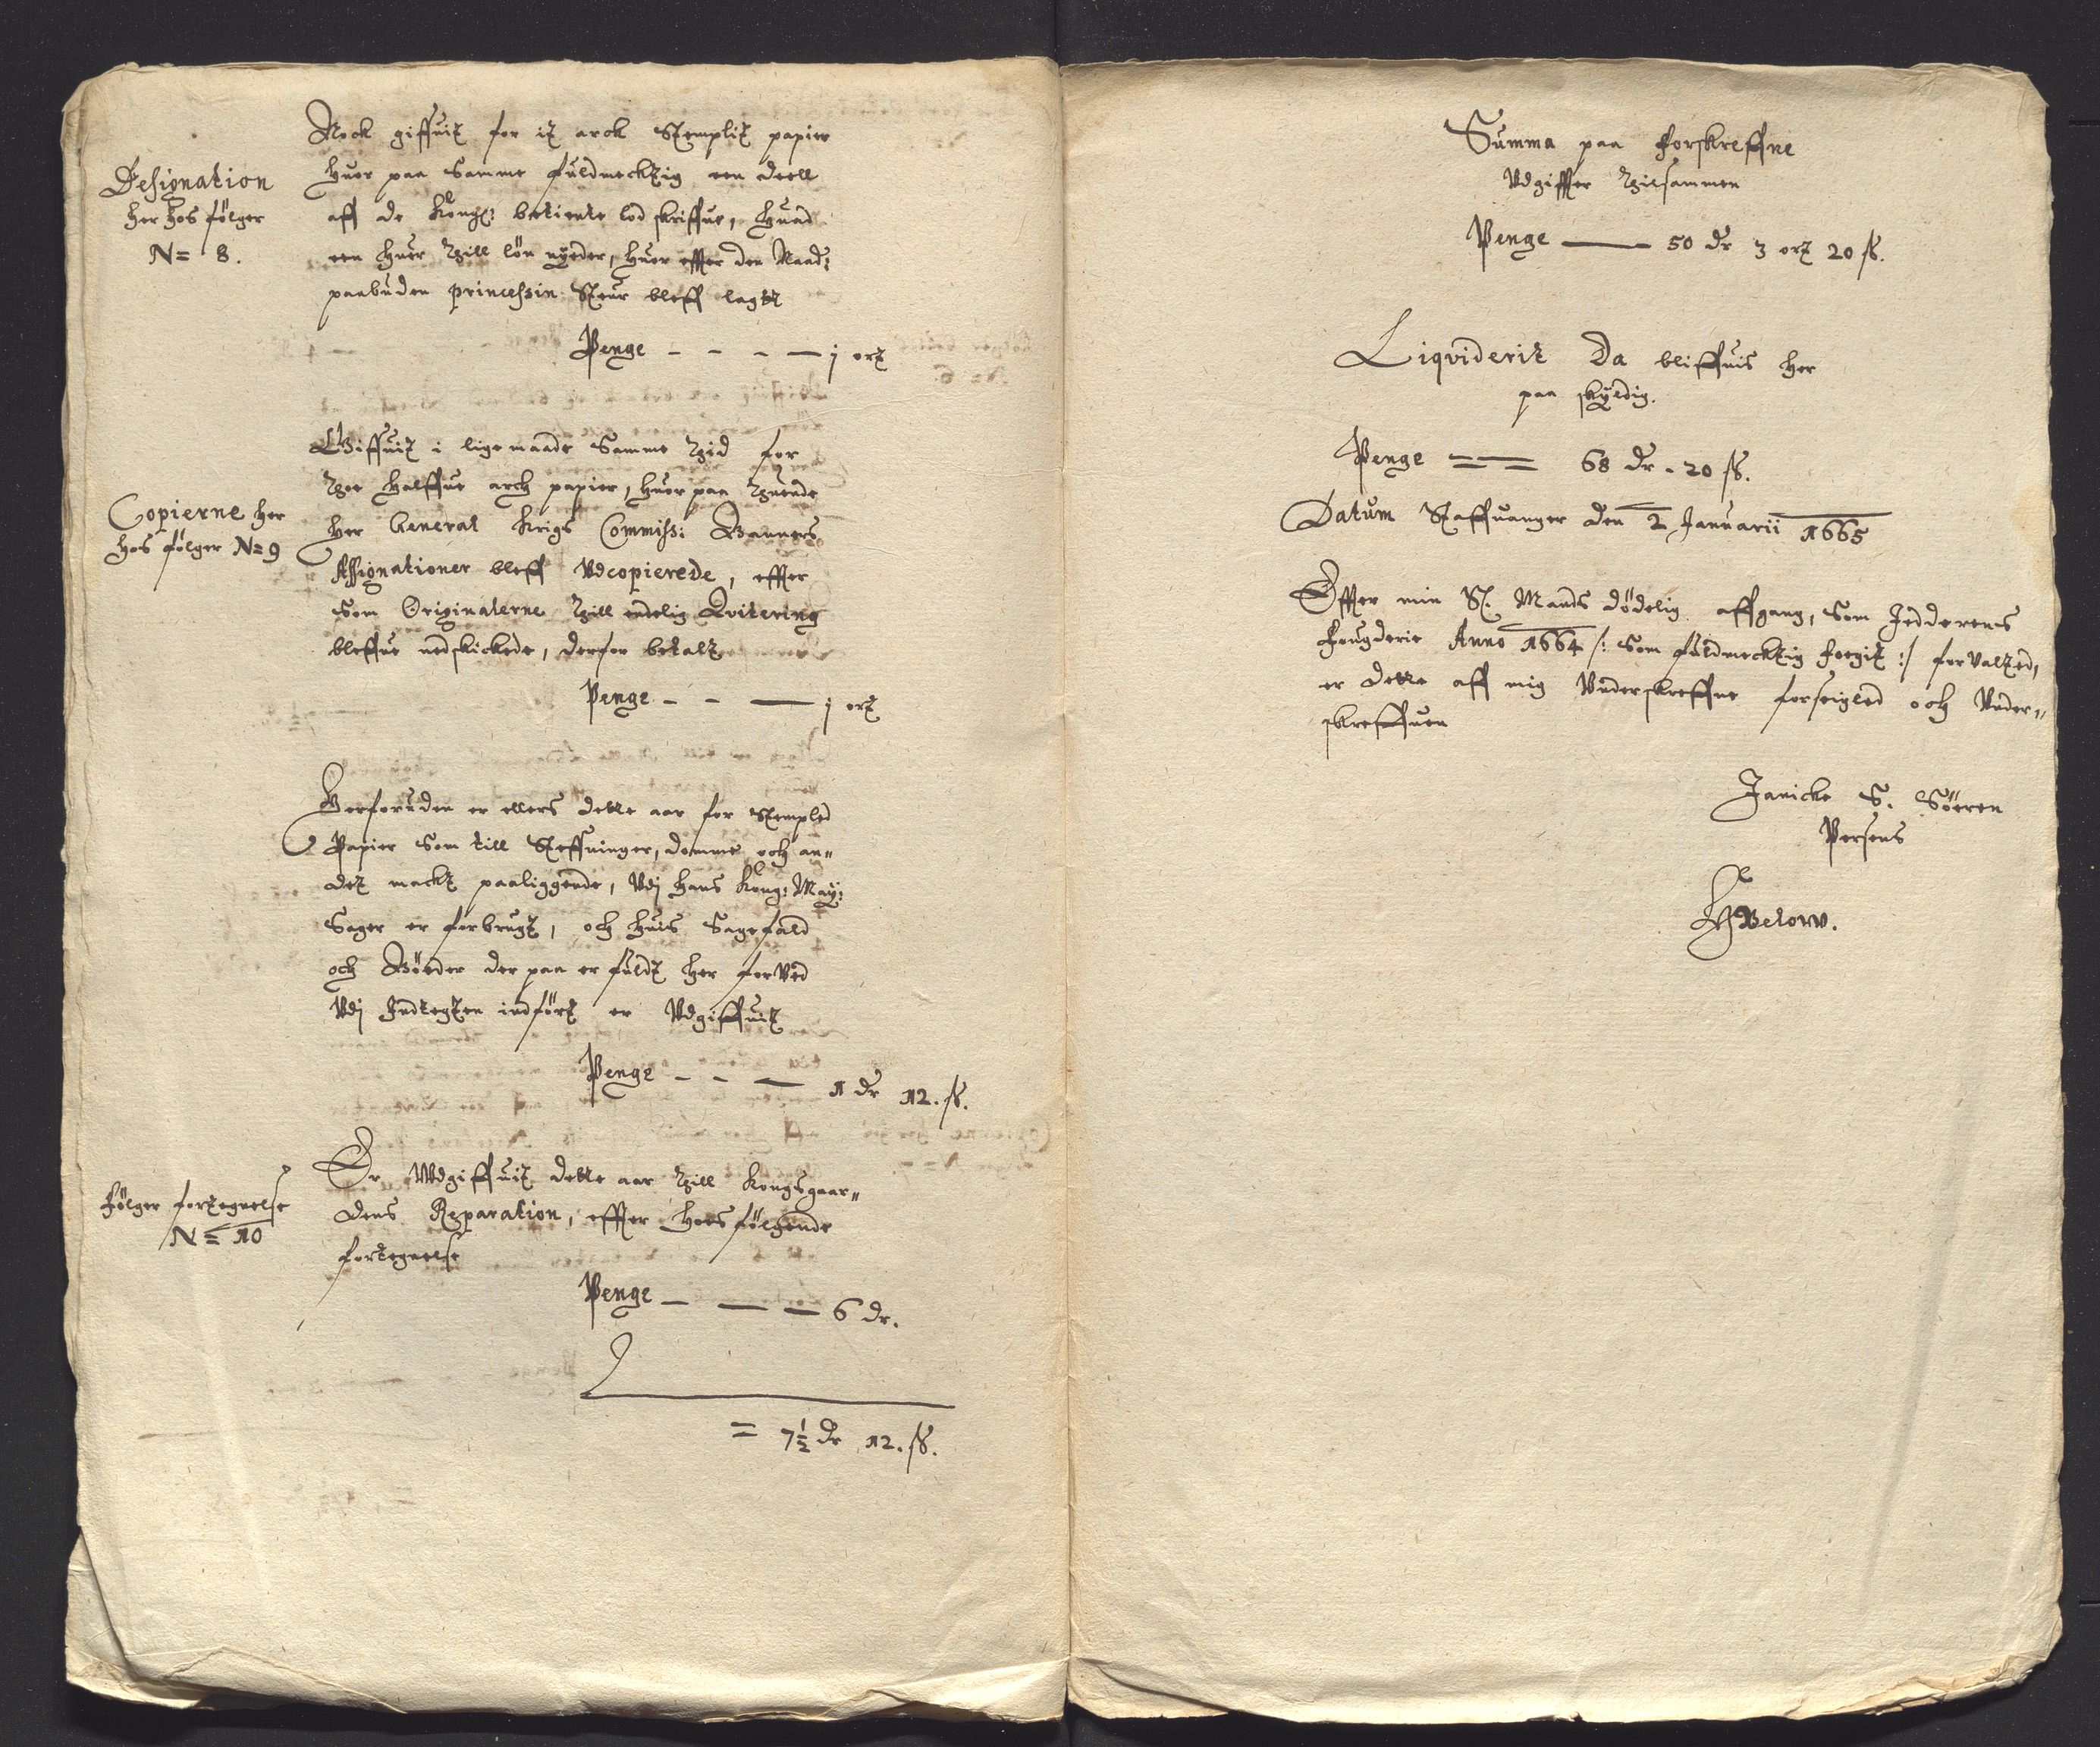 Nock giffuit for it arck Stemplit papier
Designation
her hos følger
N= 8.
huor paa Samme fuldmecktig een deell
aff de Kongl: betiente lod skriffue, huad
een huer till løn nyder, huor effter den Naad:
paabuden princessin Steur bleff lagtt
Penge - - - — j ort
Giffuit i lige maade Samme tid for
toe halffue arch papier, huor paa tuende
Copierne her
hos følger N= 9
her General Krigs Commiss: Banners
Assignationer bleff Vdcopierede, effter
Som Originalerne till endelig Qvitering
bleffue nedskickede, derfor betalt
Penge - - — j ort
Herforuden er ellers dette aar for Stempled
Papier Som till Steffninger, domme och an„
det mackt paaliggende, Vdj hans Kong: May:
Sager er forbrugt, och huis Sagefald
och Bøeder der paa er fuldt her forved
Vdj Indtegten indført er Vdgiffuit
Penge - - — 1 dr 12. ß.
Følger fortegnelse
N= 10
Er Vdgiffuit dette aar till Kongsgaar„
dens Reparation, effter hoes følgende
fortegnelse
Penge — — — 6 dr.
= 7½ dr 12. ß.
Summa paa forskreffne
Vdgiffter tilsammen
Penge —— 50 dr 3 ort 20 ß.
Liqviderit Da bliffuis her
paa skyldig.
Penge == 68 dr - 20 ß.
Datum Staffuanger den 2 Januarii 1665
Effter min Sl. Mands dødelig affgang, Som Jedderens
fougderie Anno 1664 /: Som fuldmecktig foegit :/ forvalted,
er dette aff mig Vnderskreffne forseigled och Vnder„
skreffuen
Janicke S. Søeren
Persens
HBelow.